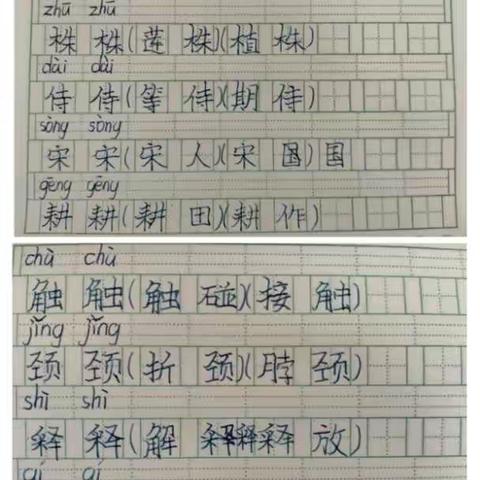 zhū zhū
株 株(莲 株)(植 株)
dài dài
侍 侍(等 侍)(期 侍)
sòng sòng
宋 宋(宋 人)(宋 国)国
gēng gēng
耕 耕(耕 田)(耕 作)
chù chù
触 触(触 碰)(接 触)
jǐng jǐng
颈 颈(折 颈)(脖 颈)
shì shì
释 释(解 释释释 放)